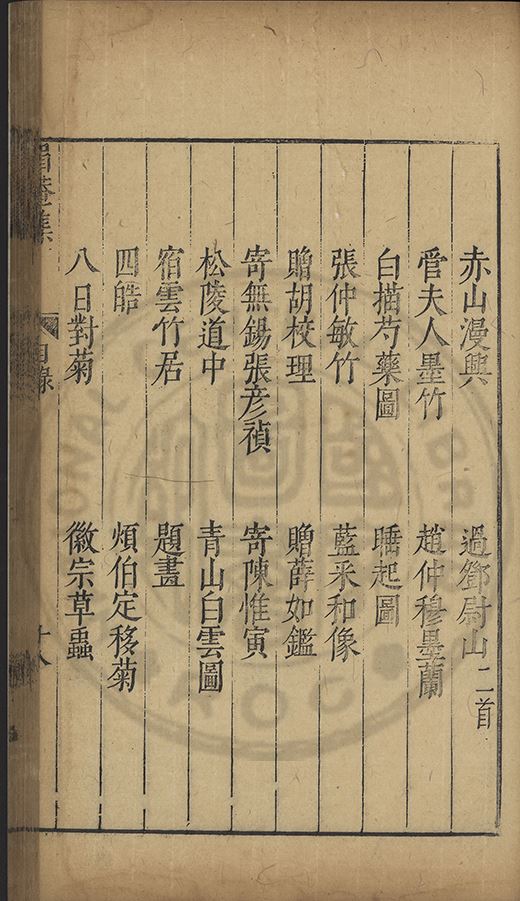 赤山漫興　過鄧尉山二首
管夫人墨竹　趙仲穆墨蘭
白描芍藥圖　睡起圖
張仲敏竹　藍采和像
贈胡校理　贈薛如鑑
寄無錫張彥禎　寄陳惟寅
松陵道中　青山白雲圖
宿雲竹居　題畫
四皓　煩伯定移菊
八日對菊　徽宗草蟲
眉菴集　目錄　十八